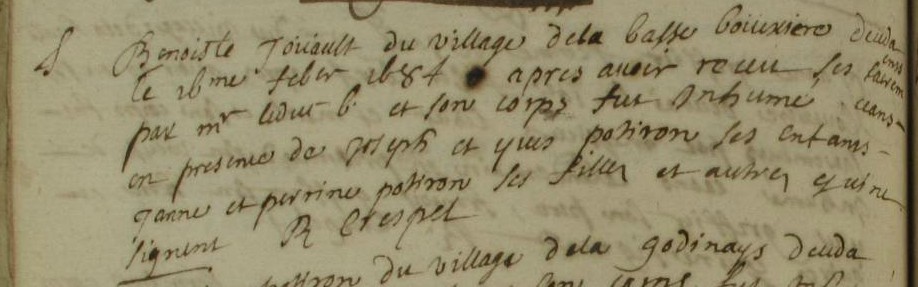 Benoiste Joüault du village dela basse boiixiere deceda
le 16me febvr 1684 apres avoir receu ses sacrem
ents
par mr leduc b. et son corps fut Inhumé ceans
en presence de Joseph et yves potiron ses enfans
Janne et perrine potiron ses filles et autres qui ne
signent R Crespel
potiron du village dela godinays deceda
son corps fut